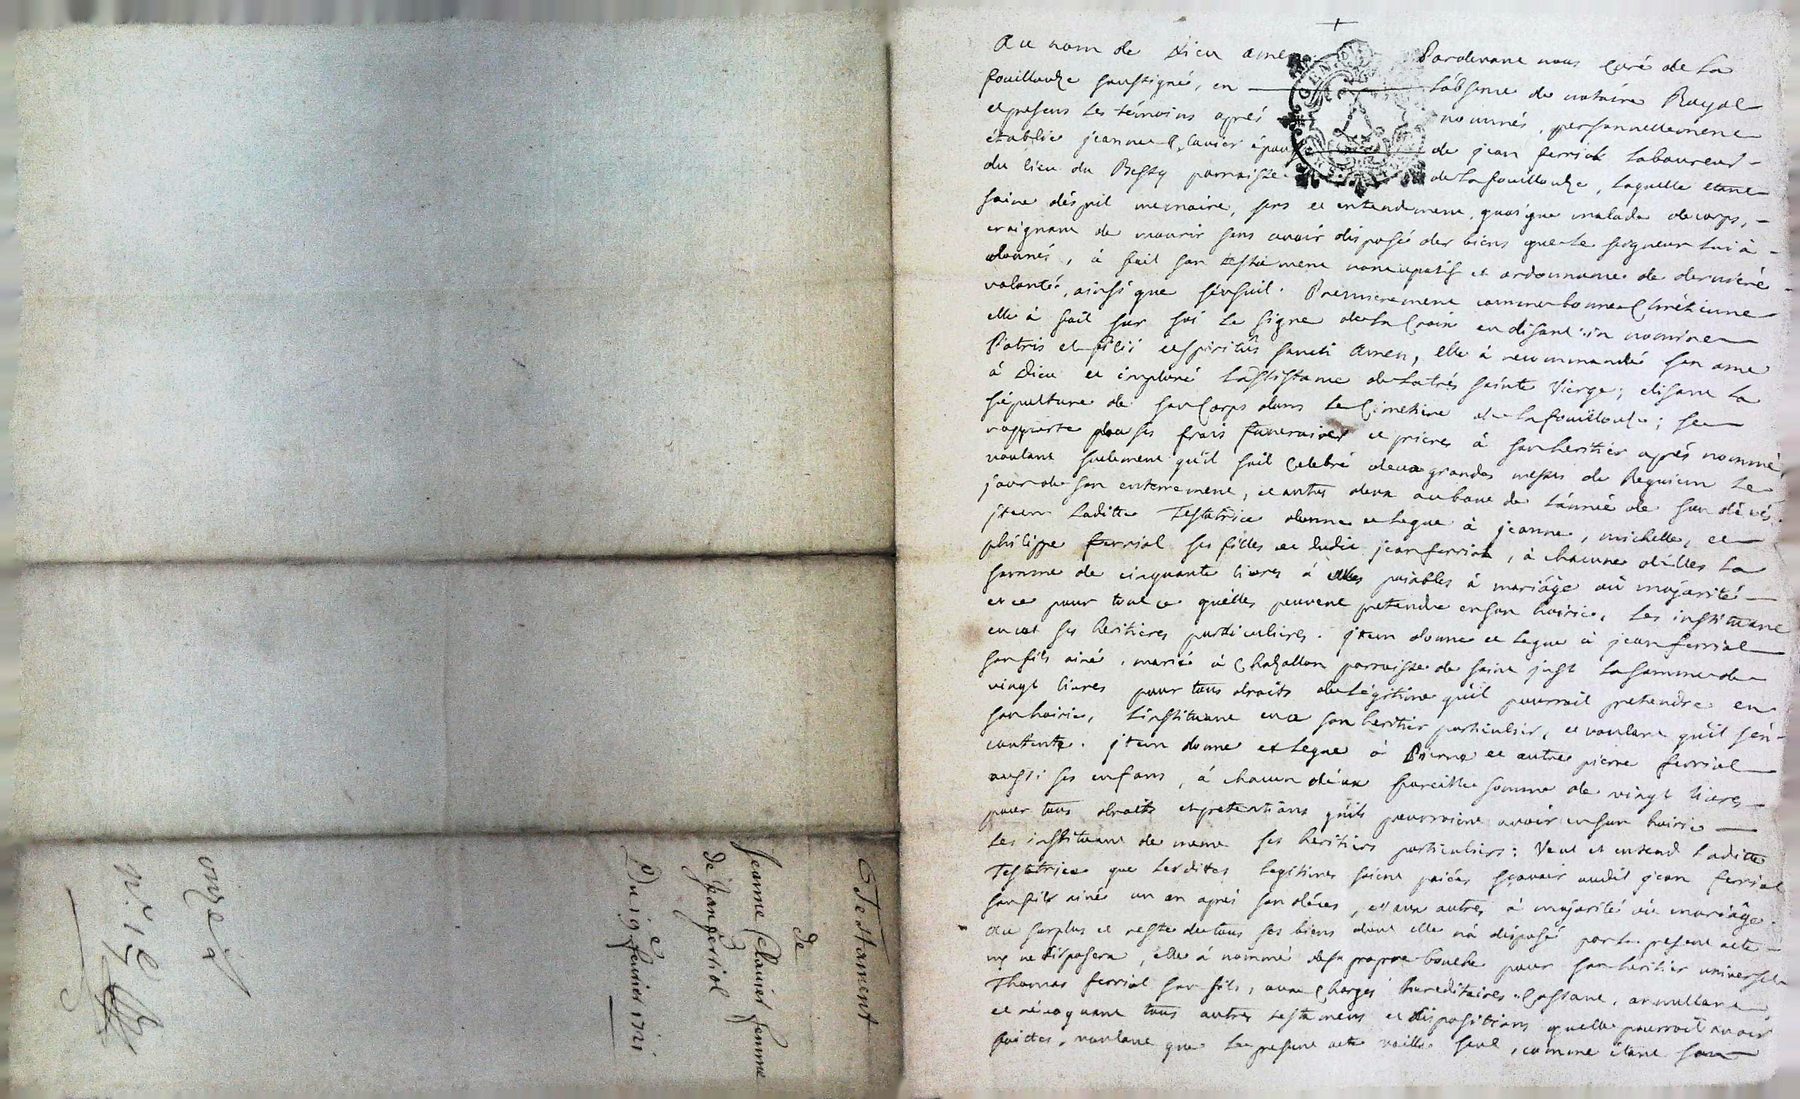 Testament
de
Jeanne Clavier femme
de Jean ferriol
Du 19e fevrier 1721
onzea
n.° 19
Au nom de Dieu amen Pardevant nous Curé de La
fouillouze soussigné, en L'absence de notaire Royal
et presens Les témoins aprés nommés, personnellement
establie jeanne Clavier épouse de jean ferriol Laboureur
du lieu du Bessy parroisse de La fouillouze, Laquelle etant
saine d'ésprit memoire, sens et entendement, quoique malade de corps,
craignant de mourir sens avoir disposé des biens que Le seigneur Lui à
donnés, à fait son testament noncupatif et ordonnance de derniére
volonté, ainsi que s'ensuit. Premierement comme bonne Chrétienne
elle à fait sur soi Le signe de La Croix en disant in nomine
Patris et filii et spiritûs sancti Amen, elle à recommandé son ame
à Dieu et imploré L'assistance de La trés sainte Vierge; elisant La
sépulture de son Corps dans Le Cimetiere de La fouillouze; se
rapporte pour ses frais funeraires et prieres à son heritier aprés nommé
voulant seulement qu'il soit Celebré deux grandes messes de Requiem Le
jour de son enterrement, et autres deux au bout de L'année de son décés.
jtem Laditte Testatrice donne et Legue à jeanne, michelle, et
philippe ferriol ses filles et dudit jean ferriol, à chacune d'élles La
somme de cinquante livres à elles païables à mariâge où majorité
et ce pour tout ce qu'élles peuvent pretendre en son hoirie, Les instituant
en ce ses heritieres particulieres. jtem donne et Legue à jean ferriol
son fils ainé, marié à Chazallon parroisse de saint just La somme de
vingt livres pour tous droits de Légitime qu'il pourroit pretendre en
son hoirie, L'instituant en ce son heritier particulier, et voulant qu'il s'en
contente. jtem donne et Legue à Pierre et autre pierre ferriol
aussi ses enfans, à chacun d'éux pareille somme de vingt livres
pour tous droits et pretentions qu'ils pourroient avoir en son hoirie
Les instituant de meme ses heritiers particuliers: Veut et entend Laditte
Testatrice que Lesdites Legitimes soient païées sçavoir audit jean ferriol
son fils ainé un an aprés son décés, et aux autres à majorité où mariâge.
Au surplus et reste de tous ses biens dont elle n'à disposé par Le present acte
ny ne disposera, elle à nommé de sa propre bouche pour son heritier universel
Thomas ferriol son fils, aux Charges hereditaires. Cassant, annullant,
et révoquant tous autres testamens et dispositions qu'elle pourroit avoir
faictes, voulant que Le present acte vaille seul, comme étant son